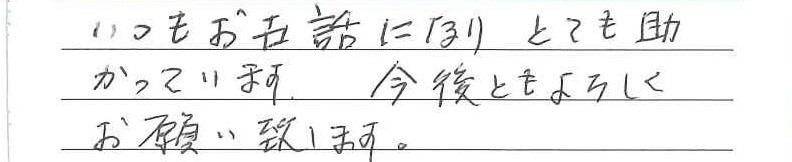 いつもお世話になり とても助
かっています。 今後ともよろしく
お願い致します。